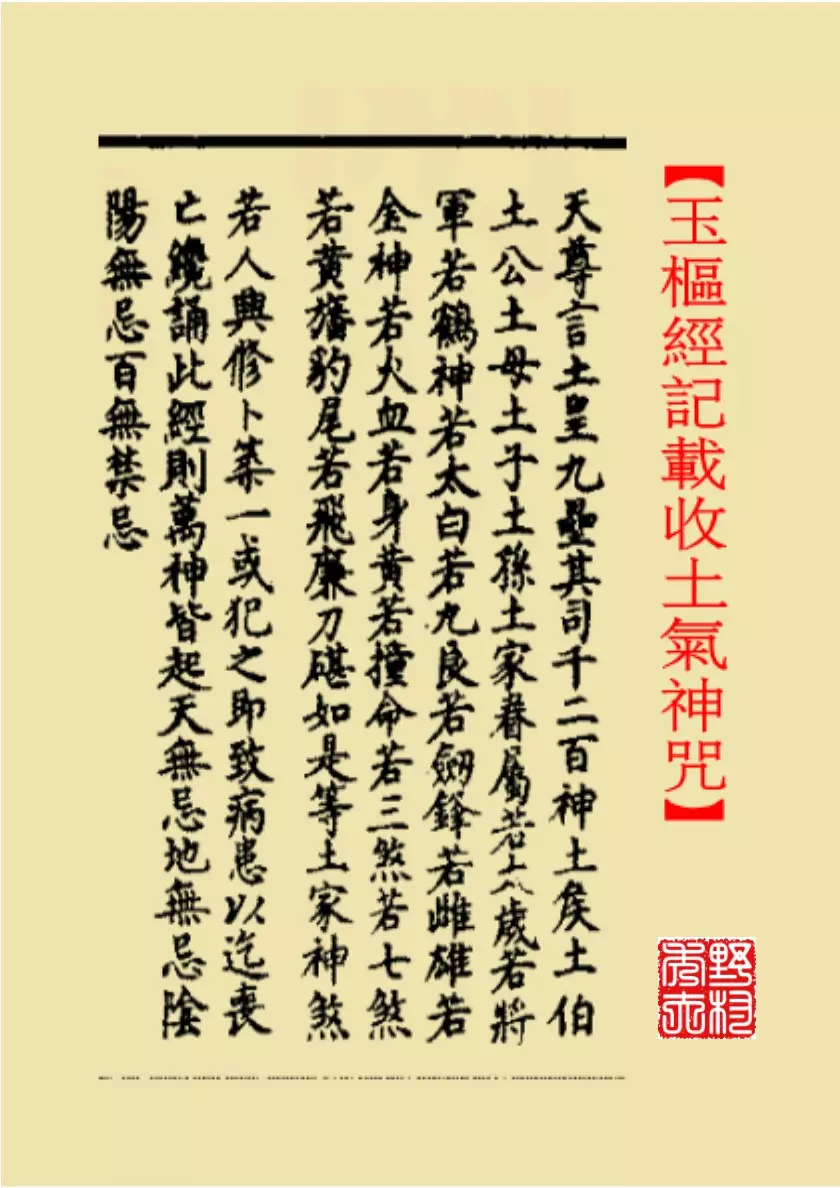 【玉樞經記載收土氣神咒】
天尊言土皇九壘其司千二百神土侯土伯
土公土母土子土孫土家眷屬若太歲若將
軍若鶴神若太白若九良若劔鋒若雌雄若
金神若火血若身黄若撞命若三煞若七煞
若黄旛豹尾若飛廉刀碪如是等土家神煞
若人興修卜築一或犯之即致病患以迄喪
亡纔誦此經則萬神皆起天無忌地無忌陰
陽無忌百無禁忌
野村